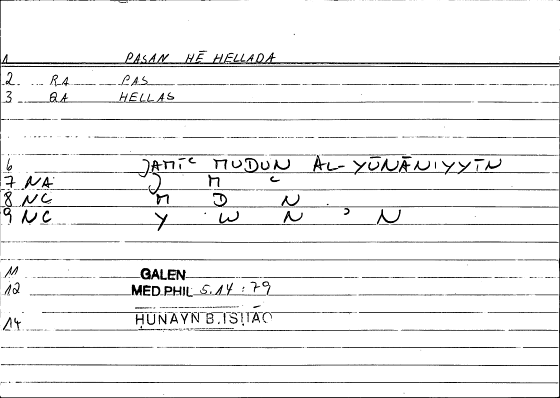 1 PASAN HĒ HELLADA
2 RA PAS
3 QA HELLAS
6 JAMĪC MUDUN AL-YŪNĀNIYYĪN
7 NA J M C
8 NC M D N
9 NC Y W N ' N
11 GALEN
12 MED.PHIL 5.14 : 79
14 ḤUNAYN B. ISḤĀQ